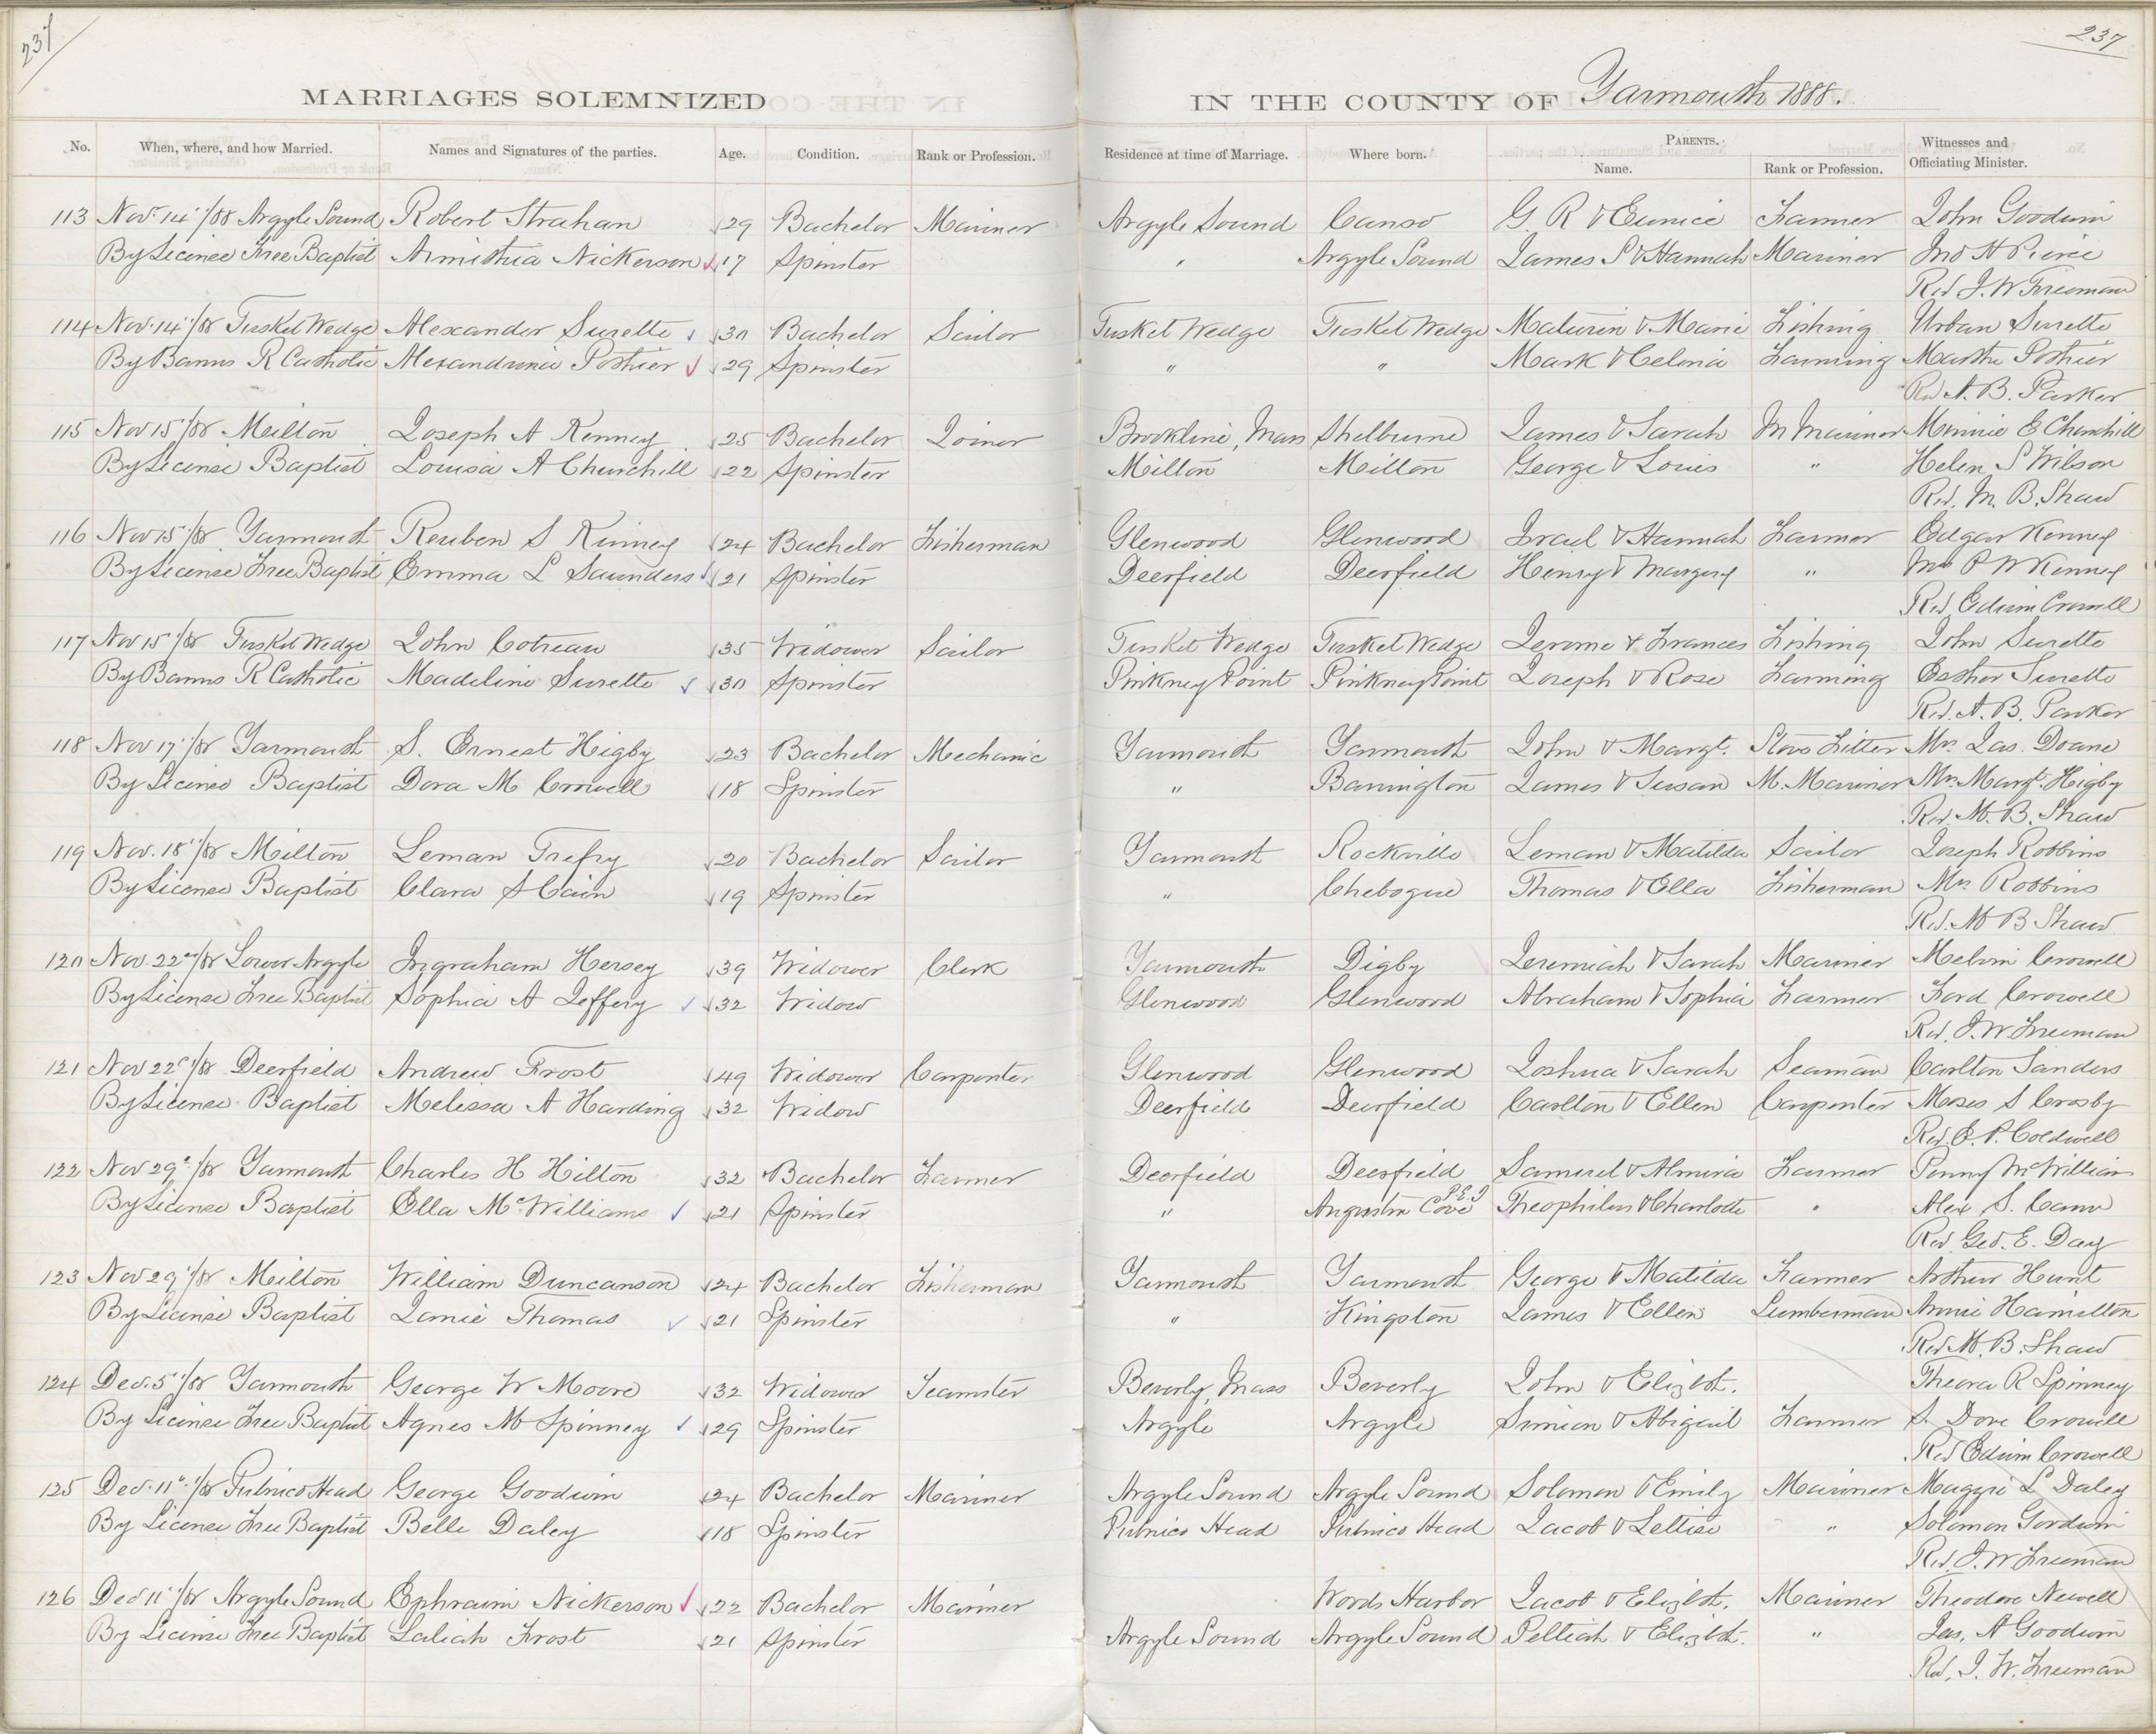 237
237
MARRIAGES SOLEMNIZED IN THE COUNTY OF Yarmouth 1888.
No. When, where, and how Married. Names and Signatures of the parties. Age. Condition. Rank or Profession. Residence at time of Marriage. Where born. PARENTS. Name. Rank or Profession. Witnesses and Officiating Minister.
113 Nov. 14 '/88 Argyle Sound Robert Strahan 29 Bachelor Mariner Argyle Sound Canso G. R & Eunice Farmer John Goodwin
By Licence Free Baptist Nickerson 17 Spinster " Argyle Sound James S & Hannah Mariner Jno H Pierce
Rev J. W Freeman
114 Nov. 14 '/88 Tusket Wedge Alexander Surette 30 Bachelor Sailor Tusket Wedge Tusket Wedge Maturin & Marie Fishing Urban Surette
By Banns R Catholic Pothier 29 Spinster " " Mark & Celonia Farming Martha Pothier
Rev A. B. Parker
115 Nov 15 '/88 Milton Joseph A Kenney 25 Bachelor Joiner Brookline, Mass Shelburne James & Sarah M Mariner Minnie E Churchill
By License Baptist Louisa A Churchill 22 Spinster Milton Milton George & Louis " Helen S Wilson
Rev. M. B. Shaw
116 Nov 15 '/88 Yarmouth Reuben S Kinney 24 Bachelor Fisherman Glenwood Glenwood Israel & Hannah Farmer Edgar Kenney
By License Free Baptist Emma L Saunders 21 Spinster Deerfield Deerfield Henry & Margery " P W Kenney
Rev. Edwin Crowell
117 Nov 15 '/88 Tusket Wedge John Cotreau 35 Widower Sailor Tusket Wedge Tusket Wedge Jerome & Frances Fishing John Surette
By Banns R Catholic Madeline Surette 30 Spinster Pinkney Point Pinkney Point Joseph & Rose Farming Esther Surette
Rev. A. B. Parker
118 Nov 17 '/88 Yarmouth S. Ernest Higby 23 Bachelor Mechanic Yarmouth Yarmouth John & Margt. Stove Fitter Mrs. Jas. Doane
By Licence Baptist Dora M Crowell 18 Spinster " Barrington James & Susan M. Mariner Mrs. Margt. Higby
Rev. M. B. Shaw
119 Nov. 18 '/88 Milton Leman Trefry 20 Bachelor Sailor Yarmouth Rockville Leman & Matilda Sailor Joseph Robbins
By License Baptist Clara S Cain 19 Spinster " Chebogue Thomas & Ella Fisherman Mrs. Robbins
Rev. M B Shaw
120 Nov. 22 '/88 Lower Argyle Ingraham Hersey 39 Widower Clerk Yarmouth Digby Jeremiah & Sarah Mariner Melvin Crowell
By License Free Baptist Sophia A Jeffery 32 Widow Glenwood Glenwood Abraham & Sophia Farmer Ford Crowell
Rev. J. W Freeman
121 Nov 22 '/88 Deerfield Andrew Frost 49 Widower Carpenter Glenwood Glenwood Joshua & Sarah Seaman Carlton Sanders
By License Baptist Melissa A Harding 32 Widow Deerfield Deerfield Carlton & Ellen Carpenter Moses S Crosby
Rev. E. P. Coldwell
122 Nov 29 '/88 Yarmouth Charles H Hilton 32 Bachelor Farmer Deerfield Deerfield Samuel & Almira Farmer Penny McWilliams
By License Baptist Ella McWilliams 21 Spinster " Augustin Cove P.E.I Theophilus & Charlotte " Alex S. Cann
Rev Geo. E. Day
123 Nov 29 '/88 Milton William Duncanson 24 Bachelor Fisherman Yarmouth Yarmouth George & Matilda Farmer Arthur Hunt
By License Baptist Janie Thomas 21 Spinster " Kingston James & Ellen Lumberman Annie Hamilton
Rev. M. B. Shaw
124 Dec. 5 '/88 Yarmouth George W Moore 32 Widower Teamster Beverly, Mass Beverly John & Elizbt. Theora R Spinney
By License Free Baptist Agnes M Spinney 29 Spinster Argyle Argyle Simion & Abigail Farmer S. Dove Crowell
Rev Edwin Crowell
125 Dec. 11 '/88 Pubnico Head George Goodwin 24 Bachelor Mariner Argyle Sound Argyle Sound Solomon & Emily Mariner Maggie L Daley
By Licence Free Baptist Belle Daley 18 Spinster Pubnico Head Pubnico Head Jacob & Lettice " Solomon Goodwin
Rev. J. W Freeman
126 Dec 11 '/88 Argyle Sound Ephraim Nickerson 22 Bachelor Mariner Woods Harbor Jacob & Elizbt. Mariner Theodore Newell
By License Free Baptist Saliah Frost 21 Spinster Argyle Sound Argyle Sound Peltiah & Elizbt. " Jas. A Goodwin
Rev. J. W. Freeman